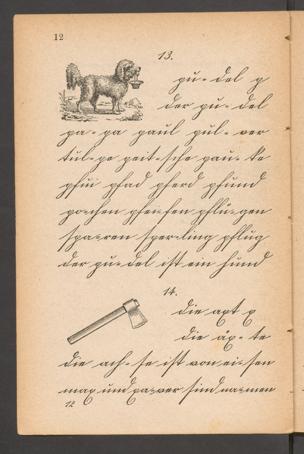 12
13.
pu-del p
der pu-del
pa-pa paul pul-ver
tul-pe peit-sche pau-ke
pfui pfad pferd pfund
po-chen pfei-fen pflü-gen
spa-ren sper-ling pflug
der pu-del ist ein hund
14.
die axt x
die äx-te
die ach-se ist von ei-sen
max und xa-ver sind na-men
12